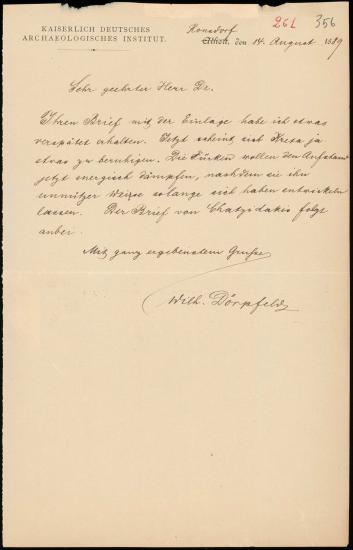 KAISERLICH DEUTSCHES
ARCHAEOLOGISCHES INSTITUT.
261 356
Ronsdorf
Athen, den 14. August 1889
Sehr geehrter Herr Dr.
Ihren Brief mit der Einlage habe ich etwas
verspätet erhalten. Jetzt scheint sich Kreta ja
etwas zu beruhigen. Die Türken wollen den Aufstand
jetzt energisch dämpfen, nachdem sie ihn
unnützer Weise solange sich haben entwickeln
lassen. Der Brief von Chatzidakis folgt
anbei.
Mit ganz ergebenstem Grusse
Wilh. Dörpfeld